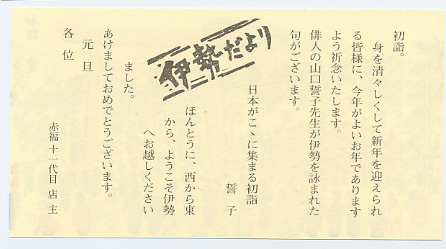 初詣。
身を清々しくして新年を迎えられ
る皆様に、今年がよいお年であります
よう祈念いたします。
俳人の山口誓子先生が伊勢を詠まれた
句がございます。
日本がこゝに集まる初詣
誓子
伊勢だより
ほんとうに、西から東
から、ようこそ伊勢
へお越しください
ました。
あけましておめでとうございます。
元旦
各位
赤福十一代目店主